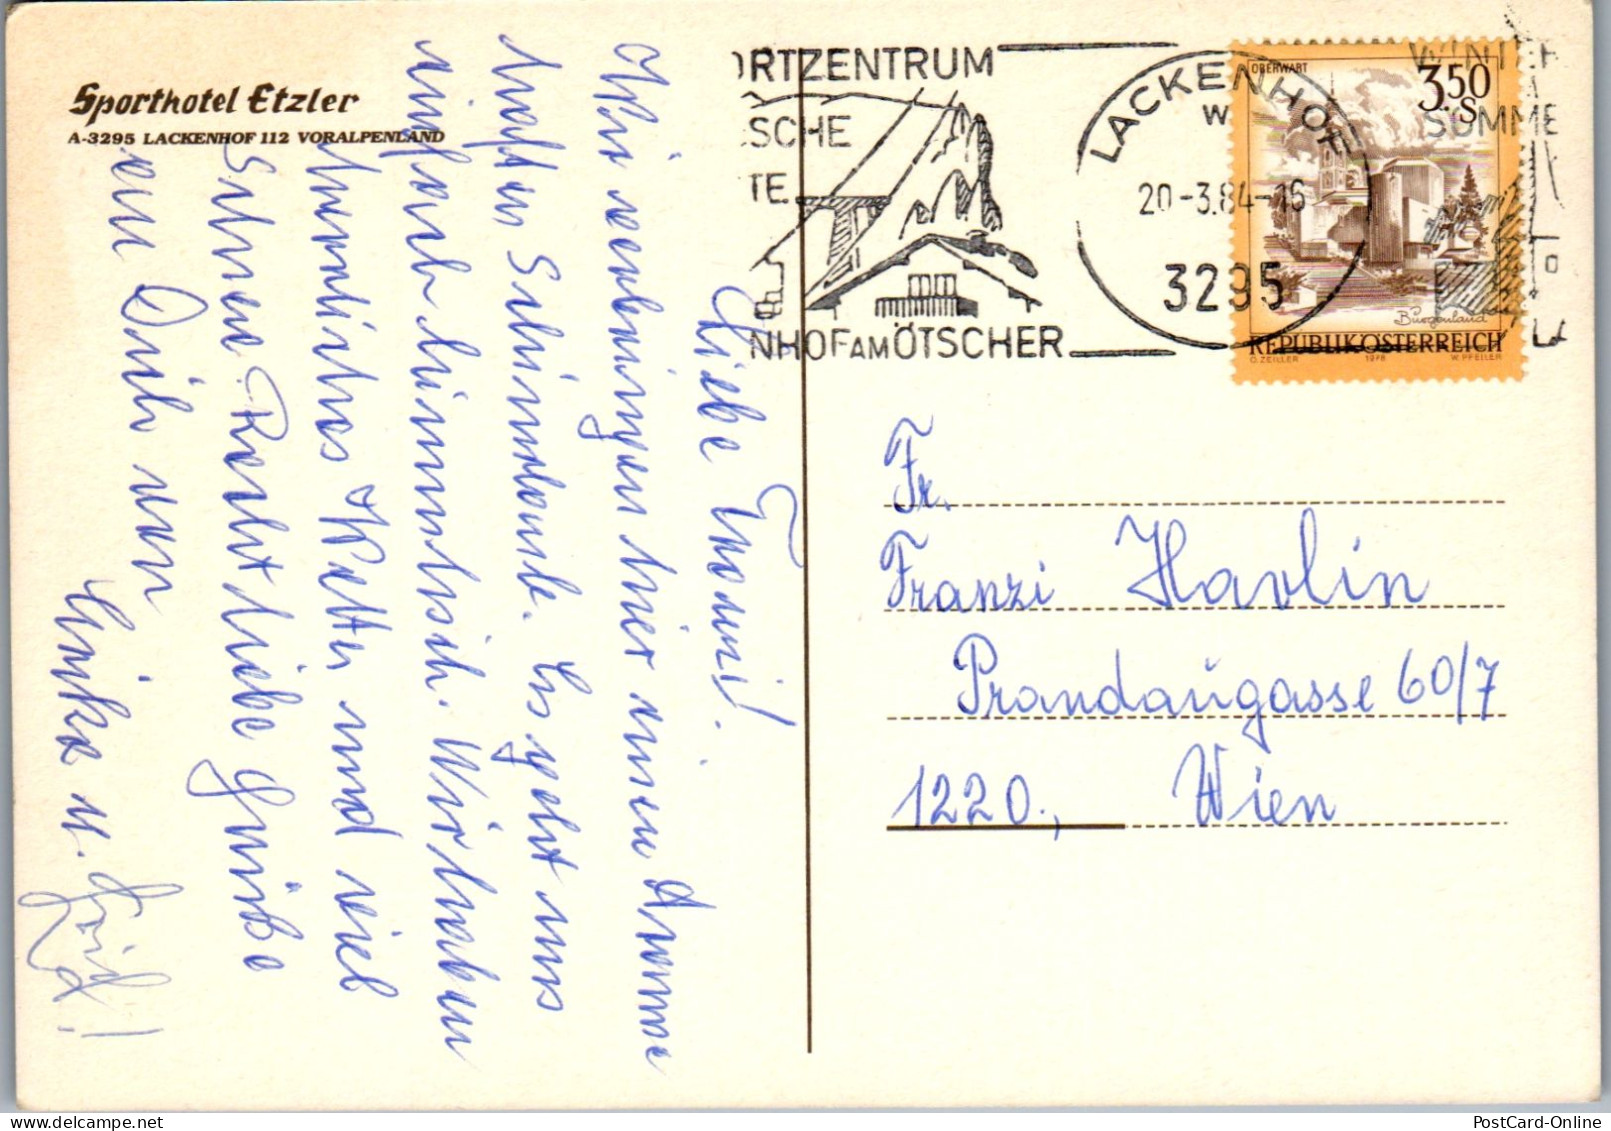 Sporthotel Etzler
A-3295 LACKENHOF 112 VORALPENLAND
ORTZENTRUM
SCHE
TE
NHOF AM ÖTSCHER
LACKENHOF
20.-3.84-16
3295
WINTER
SOMME
OBERWART
3.50
S
Burgenland
REPUBLIK ÖSTERREICH
O. ZEILLER 1978 W. PFEILER
Liebe Franzi!
Wir verbringen hier einen
haften Schiurlaub. Es geht uns
einfach himmlisch. Wir haben
herrliches Wetter und viel
Schnee. Recht liebe Grüße
an Dich von
u.
Fr.
Franzi Havlin
Prandaugasse 60/7
1220., Wien
PostCard-Online